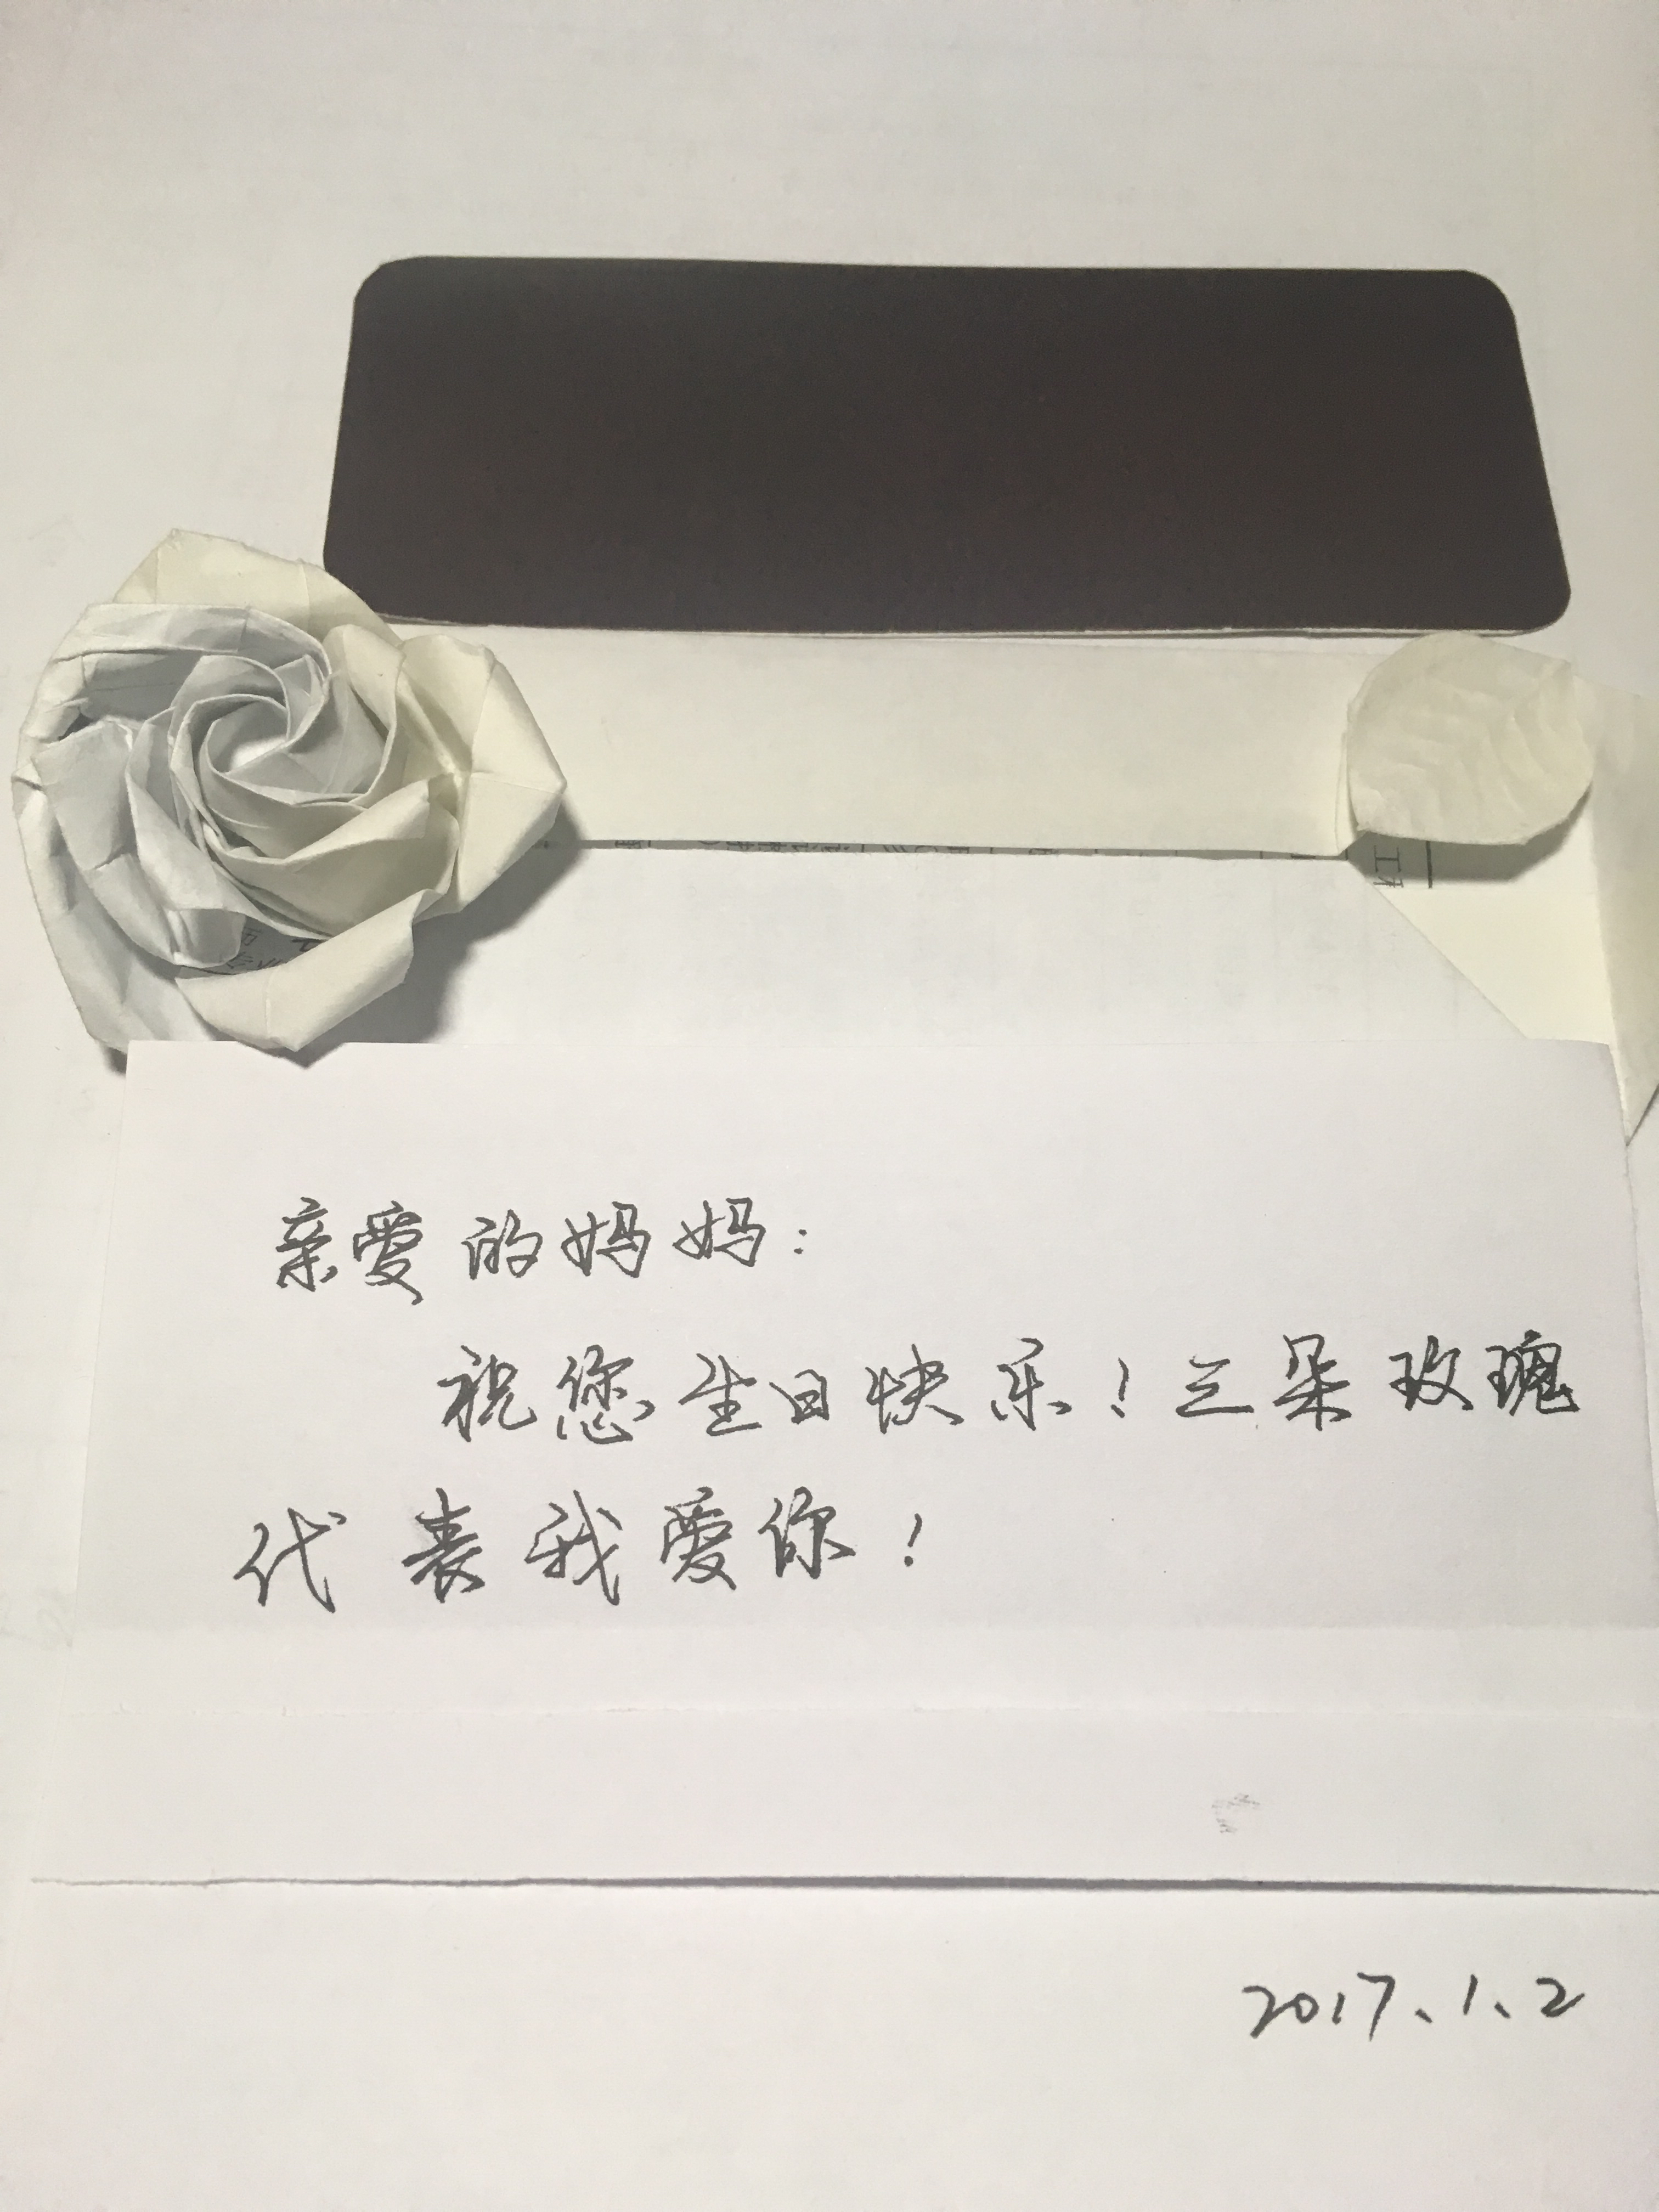 亲爱的妈妈：
祝您生日快乐！三朵玫瑰
代表我爱你！
2017、1、2